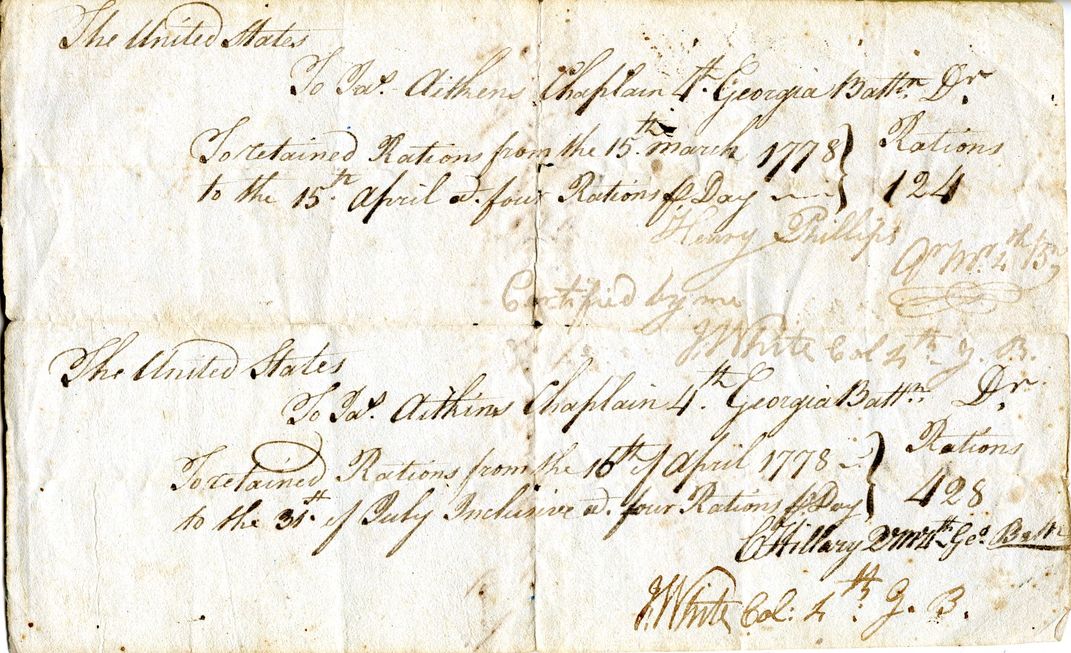 The United States
To Jas. Aitkens Chaplain 4th. Georgia Battn. Dr.
To retained Rations from the 15th. March 1778 } Rations
to the 15th. April a. four Rations ⅌ Day } 124
Henry Phillips
Qr. Mr. 4th Bn
Certified by me
J. White Col 4th. G. B.
The United States
To Jas. Aitkins Chaplain 4th. Georgia Battn. Dr.
To retained Rations from the 16th of April 1778 } Rations
to the 31st. of July Inclusive a. four Rations ⅌ Day } 428
C Hillary 4th Geo. Battn
J. White Col: 4th G. B.